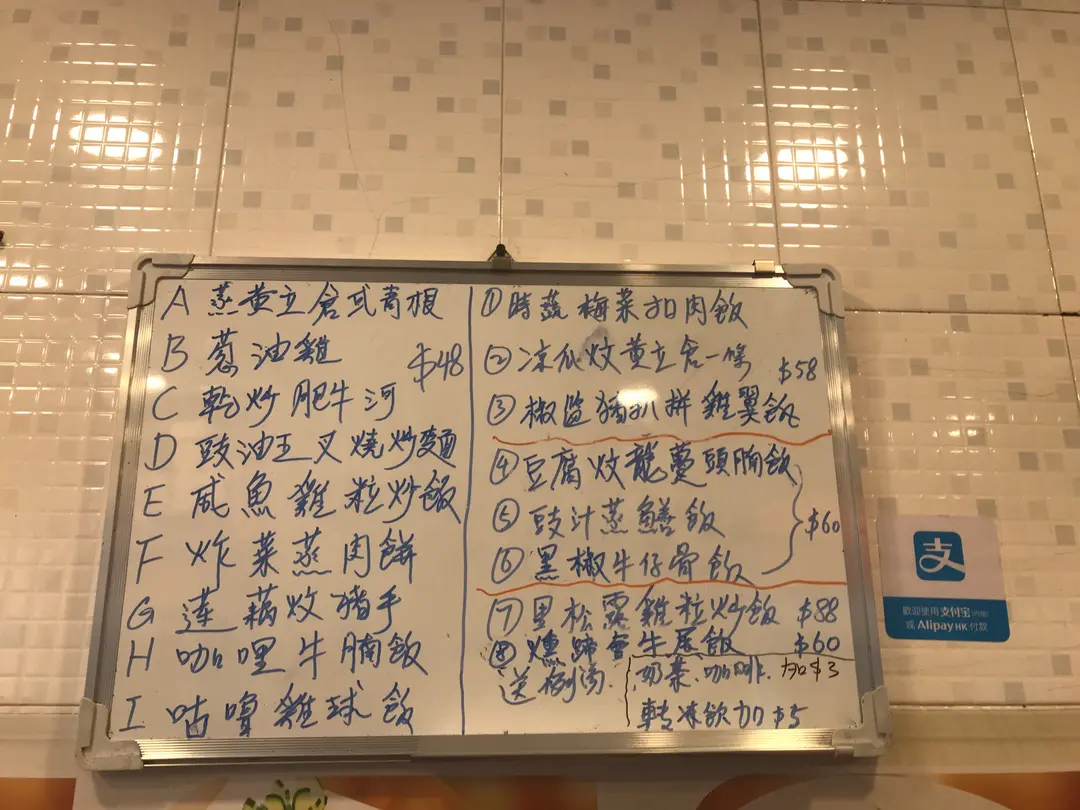 A 蒸黄立倉或青根
B 葱油雞
$48
C 乾炒肥牛河
D 豉油王叉燒炒麵
E 咸魚雞粒炒飯
F 炸菜蒸肉餅
G 蓮藕炆豬手
H 咖哩牛腩飯
I 咕嚕雞球飯
①時蔬梅菜扣肉飯
②凉瓜炆黄立倉一條
$58
③椒盐豬扒拼雞翼飯
④豆腐炆龍躉頭腩飯
⑤豉汁蒸鱔飯
$60
⑥黑椒牛仔骨飯
⑦黑松露雞粒炒飯 $88
⑧燻蹄 牛尾飯 $60
送例湯
奶茶.咖啡.加$3
轉凍飲加$5
支
歡迎使用支付宝
或 Alipay HK 付款